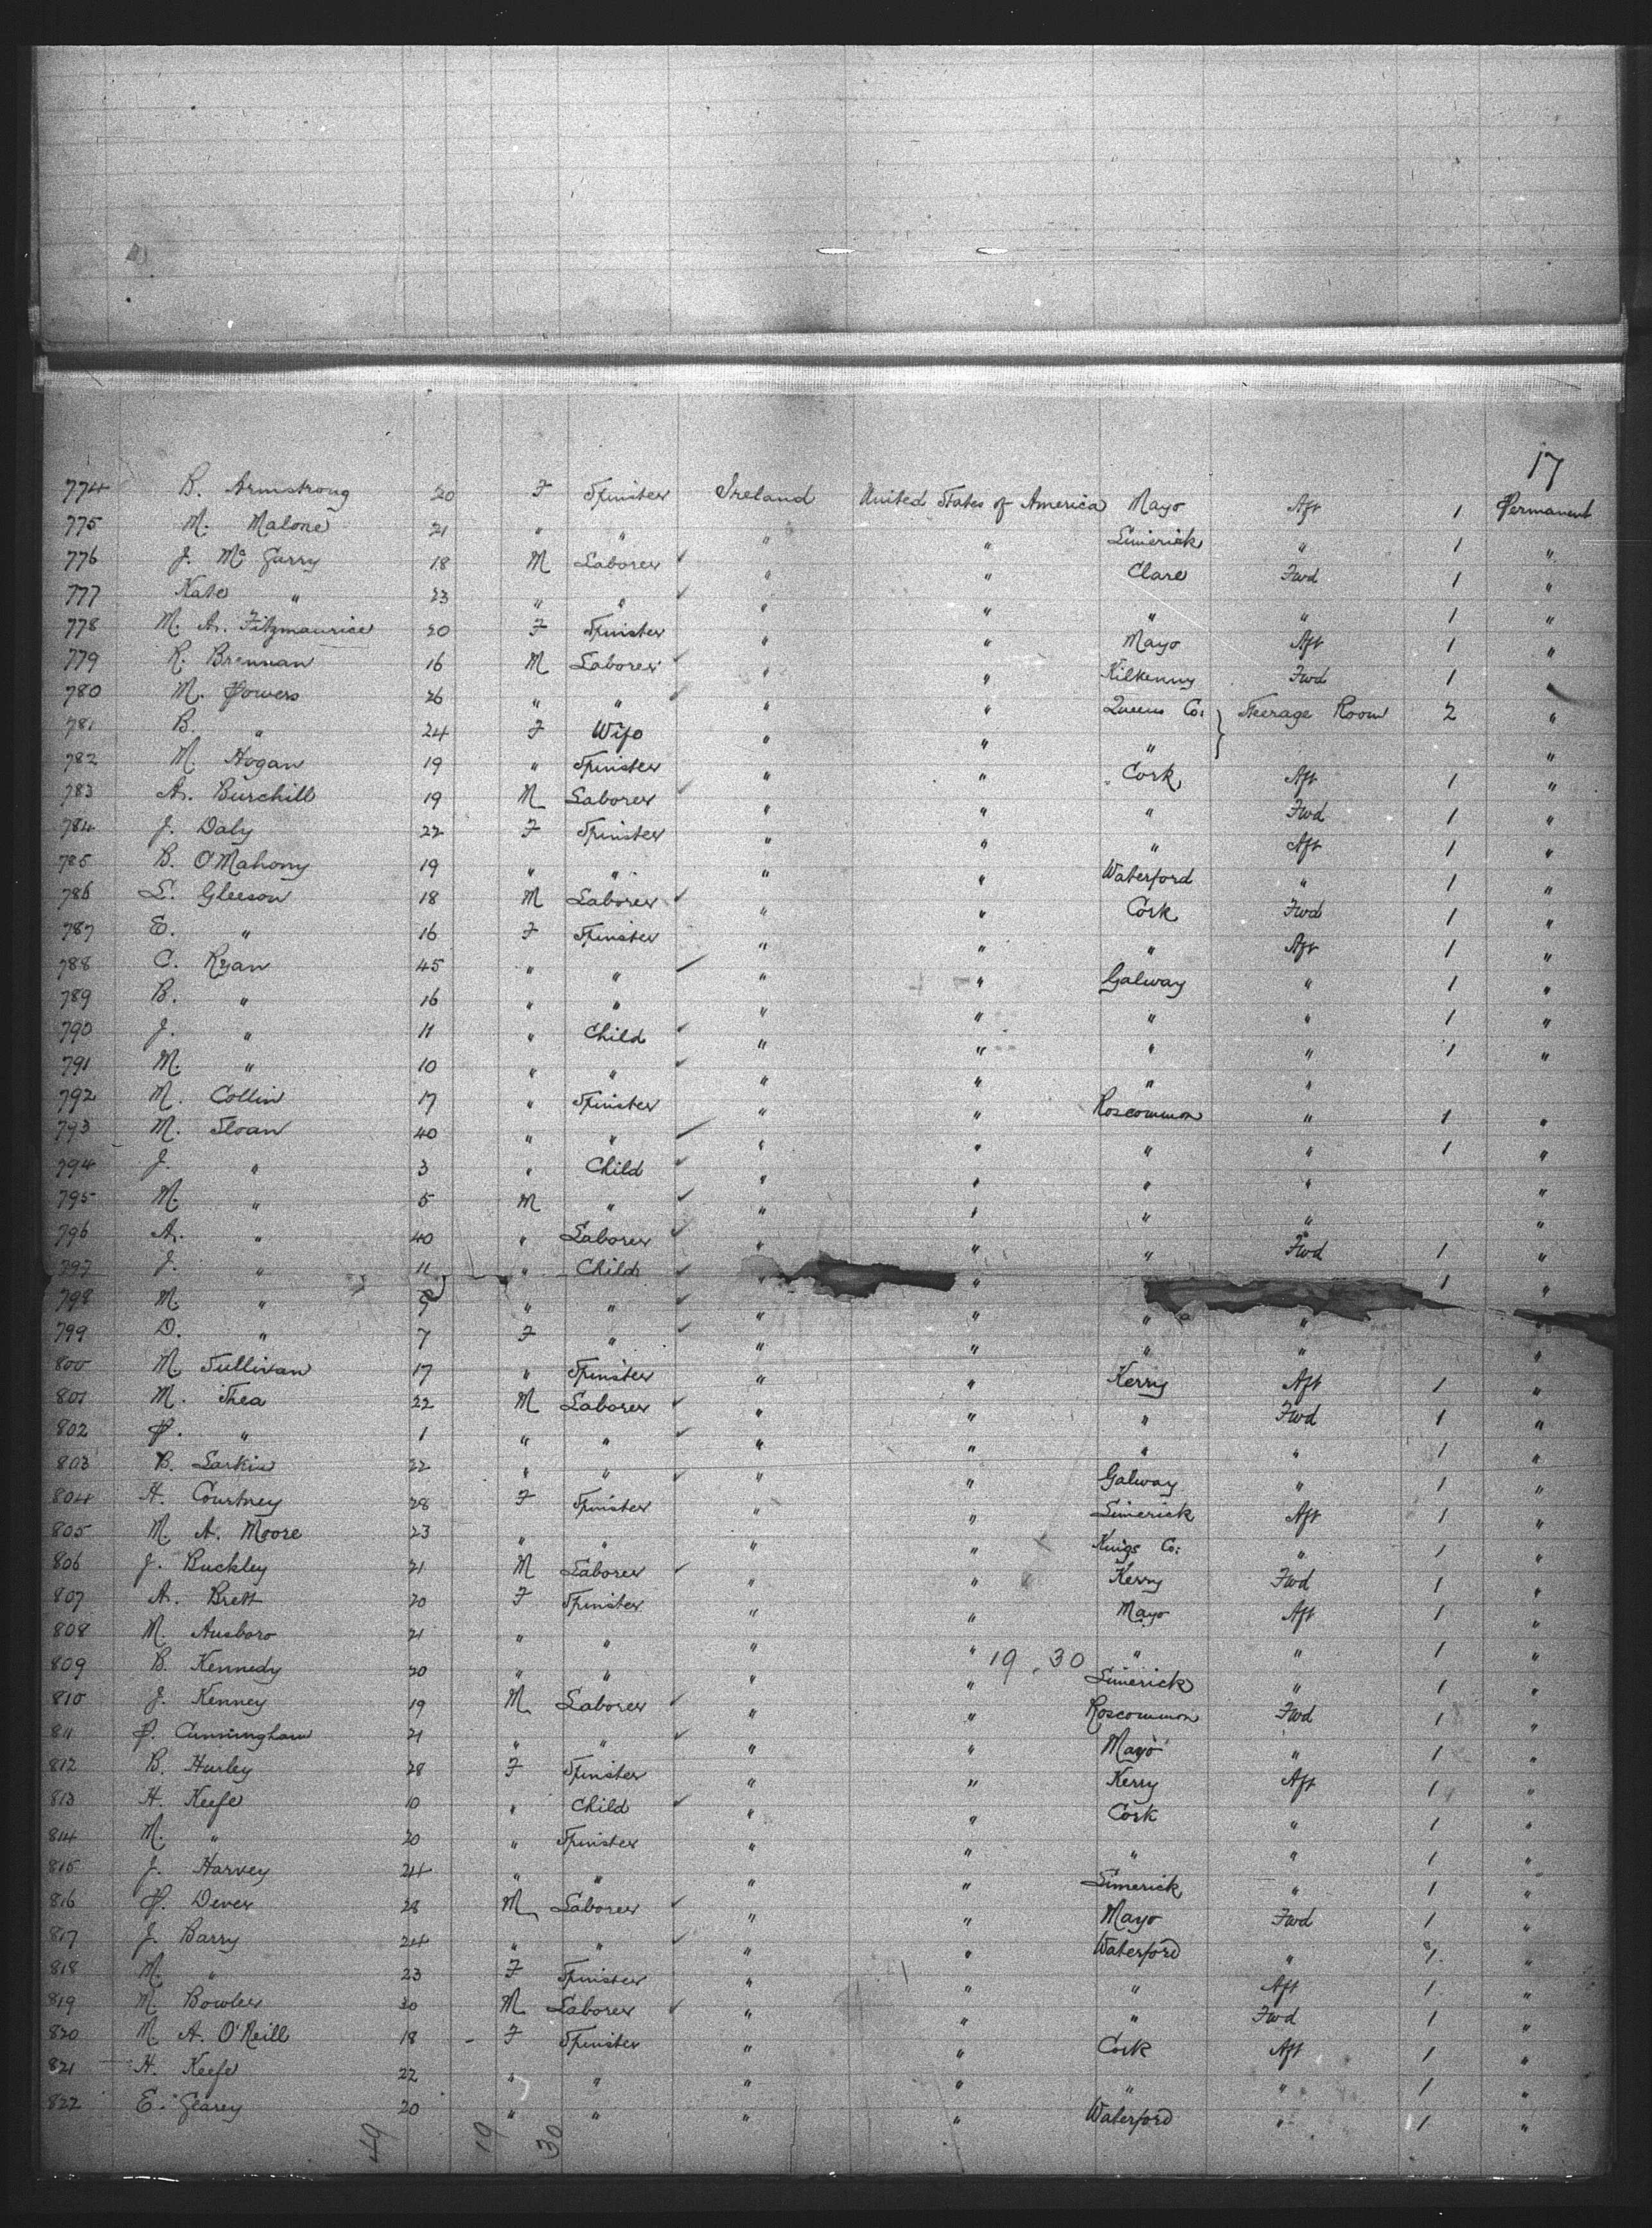 17
774 B. Armstrong 20 F Spinster Ireland United States of America Mayo Aft 1 Permanent
775 M. Malone 21 " " " " Limerick " 1 "
776 J. McGarry 18 M Laborer ✓ " " Clare Fwd 1 "
777 Kate " 23 " " ✓ " " " " 1 "
778 M. A. Fitzmaurice 20 F Spinster " " Mayo Aft 1 "
779 R. Brennan 16 M Laborer ✓ " " Kilkenny Fwd 1
780 M. Powers 26 " " ✓ " Queens Co. } Steerage Room 2 "
781 B. " 24 F Wife " " " "
782 M. Hogan 19 " Spinster " " Cork Aft 1 "
783 A. Burchill 19 M Laborer ✓ " " " Fwd 1 "
784 J. Daly 22 F Spinster " " " Aft 1 "
785 B. O'Mahony 19 " " " " Waterford " 1 "
786 L. Gleeson 18 M Laborer ✓ " " Cork Fwd 1 "
787 E. " 16 F Spinster " " " Aft 1 "
788 C. Ryan 45 " " ✓ " " Galway " 1 "
789 B. " 16 " " " " " " 1 "
790 J. " 11 " Child ✓ " " " " 1 "
791 M. " 10 " " ✓ " " " "
792 M. Collin 17 " Spinster " " Roscommon " 1 "
793 M. Sloan 40 " " ✓ " " " " 1 "
794 J. " 3 " Child ✓ " " " " "
795 M. " 5 M " ✓ " " " " "
796 A. " 40 " Laborer ✓ " " " Fwd 1 "
797 J. " 11 " Child ✓ " " 1 "
798 M. " 9 " " ✓ " " " " "
799 D. " 7 F " ✓ " " " " "
800 M. Sullivan 17 " Spinster " " Kerry Aft 1 "
801 M. Shea 22 M Laborer ✓ " " " Fwd 1 "
802 P. " 1 " " ✓ " " " " 1 "
803 B. Larkin 22 " " ✓ " " Galway " 1 "
804 H. Courtney 28 F Spinster " " Limerick Aft 1 "
805 M. A. Moore 23 " " " " Kings Co: " 1 "
806 J. Buckley 21 M Laborer ✓ " " Kerry Fwd 1 "
807 A. Brett 20 F Spinster " " Mayo Aft 1 "
808 M. Ausboro 21 " " " " " " 1 "
809 B. Kennedy 20 " " " " 19 . 30 Limerick " 1 "
810 J. Kenney 19 M Laborer ✓ " " Roscommon Fwd 1 "
811 P. Cunningham 21 " " ✓ " " Mayo " 1 "
812 B. Hurley 28 F Spinster " " Kerry Aft 1 "
813 H. Keefe 10 " Child ✓ " " Cork " 1 "
814 M. " 20 " Spinster " " " " 1 "
815 J. Harvey 24 " " " " Limerick " 1 "
816 P. Dever 28 M Laborer ✓ " " Mayo Fwd 1 "
817 J. Barry 24 " " ✓ " " Waterford " 1 "
818 M. " 23 F Spinster " " " Aft 1 "
819 M. Bowler 30 M Laborer ✓ " " " Fwd 1 "
820 M. A. O'Neill 18 F Spinster " " Cork Aft 1 "
821 H. Keefe 22 " " " " " " 1 "
822 E. Gearey 20 " " " " Waterford " 1 "
49 19 30